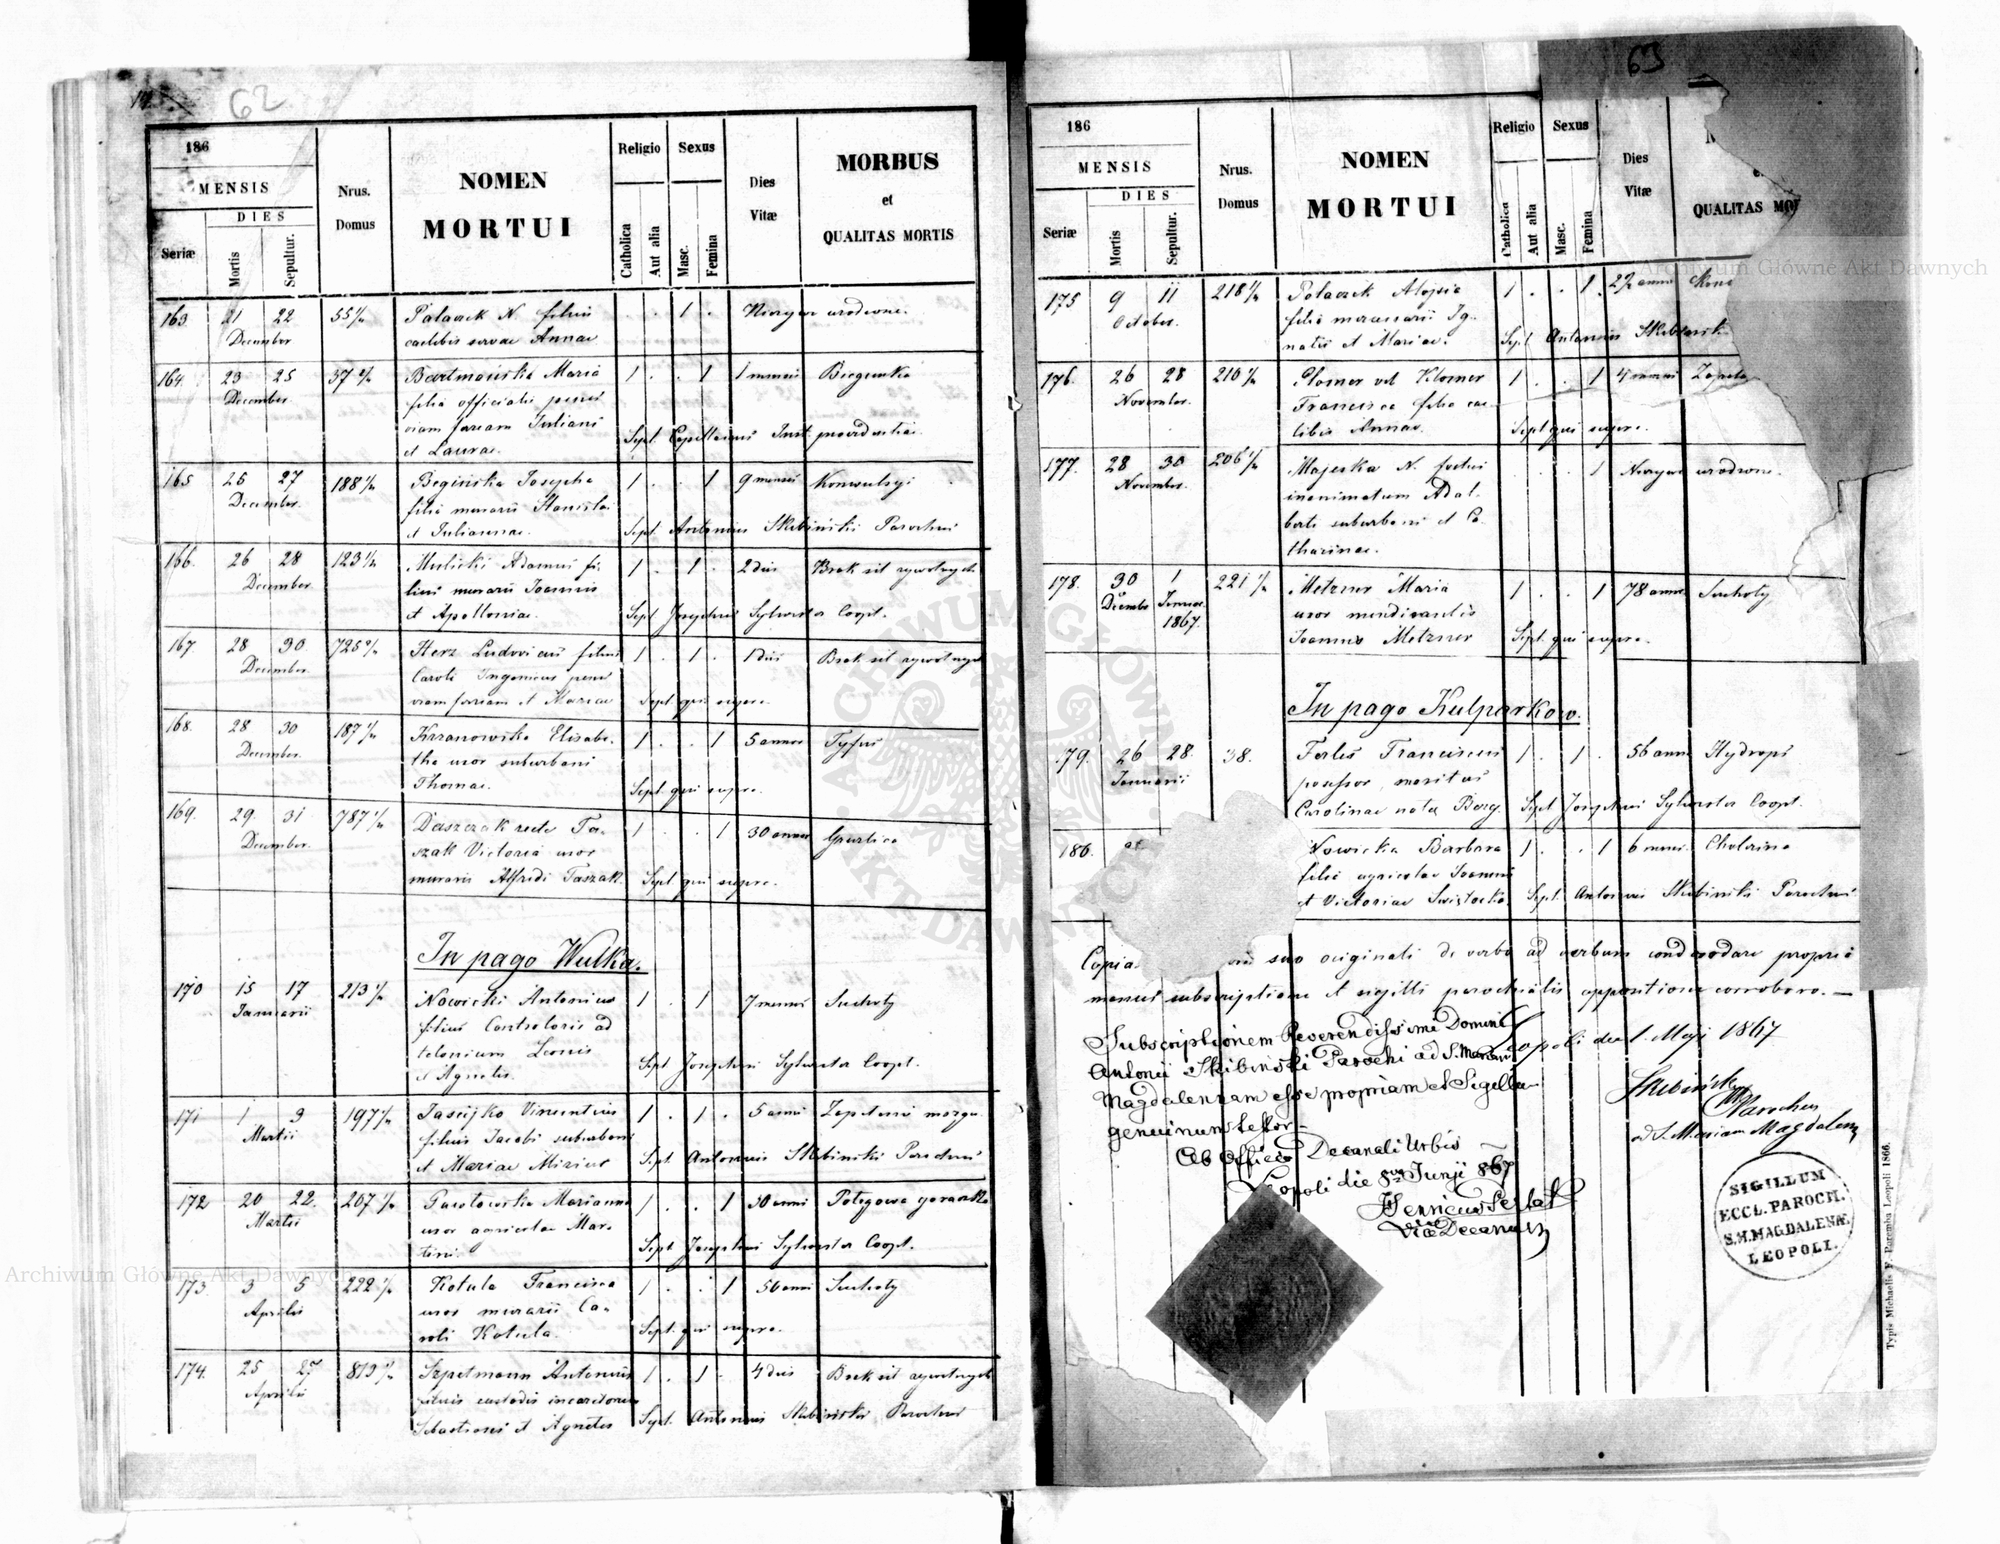 62
186
MENSIS
DIES
Seriæ
Mortis
Sepultur.
Nrus.
Domus
NOMEN
MORTUI
Religio
Catholica
Aut alia
Sexus
Masc.
Femina
Dies
Vitæ
MORBUS
et
QUALITAS MORTIS
163 21 22 55 Polaczek N. filius Nieżywo urodzone.
December caelibis servae Annae
164. 23 25 37 Bartmańska Maria 1 . . 1 1 mensis Biegunka
December filia officialis penes
viam ferream Juliani
et Laurae. Sept. Capellanus Inst. providentiae.
165 25 27 188 Begińska Josepha 1 . . 1 9 menses Konwulsyi
December. filia murarii Stanislai
et Juliannae. Sept. Antonius Skibiński Parochus
166. 26 28 123 Mulicki Adamus fi- 1 . 1 . 2 dies Brak sił żywotnych
December lius murarii Joannis
et Apolloniae. Sept Josephus Sylvester Coopt.
167. 28 30. 725 Herz Ludovicus filius 1 . 1 . 1 dies Brak sił żywotnych
December. Caroli Ingenieur penes
viam ferream et Mariae Sept. qui supra.
168. 28 30 187 Krzanowska Elisabe- 1 . . 1 5 annos Tyfus
December. tha uxor suburbani
Thomae. Sept. qui supra.
169. 29. 31 787 Daszczak recte Ta- 1 . . 1 30 annos
December. szak Victoria uxor
murarii Alfredi Taszak. Sept. qui supra.
In pago Wulka.
170 15 17 213 Nowicki Antonius 1 . 1 7 menses Suchoty
Januarii filius Controloris ad
telonium Leonis
et Agnetis. Sept Josephus Sylvester Coopt.
171 1 3 197 Vincentius 1 . 1 . 5 anni Zapalenie mózgu.
Martii filius Jacobi suburbani
et Mariae Sept. Antonius Skibinski Parochus
172 20 22. 207 Pawłowska Marianna 1 . . 1 30 anni Połogowa gorączka
Martii uxor agricolae Mar-
tini Sept Josephus Sylvester Coopt.
173. 3 5 222 Kotula Francisca 1 . . 1 56 anni Suchoty
Aprilis uxor murarii Ca-
roli Kotula. Sept. qui supra.
174. 25 27 819 Szpetmann Antonius 1 . 1 . 4 dies Brak sił żywotnych
Aprilis filius custodis incarcetorum
Sebastiani et Agnetis Sept. Antonius Skibiński Parochus
63
186
MENSIS
DIES
Seriæ
Mortis
Sepultur.
Nrus.
Domus
NOMEN
MORTUI
Religio
Catholica
Aut alia
Sexus
Masc.
Femina
Dies
Vitæ
QUALITAS MOR
175 9 11 218 Polaczek Aloysia 1 . . 1.
October. filia mercenarii Ig-
natii et Mariae. Sept Antonius Skibinski
176. 26 28 210 Plomer vel Klomer 1 . . 1 4 menses
November. Francisca filia cae-
libis Annae. Sept qui supra.
177. 28 30 206 Majerka N. foetus 1 Nieżywo urodzone.
November. inanimatum Adal-
berti suburbani et Ca-
tharinae.
178. 30 1 221 Metzner Maria 1 . 1 78 annos Suchoty
Decembr Januar. uxor mendicantis
1867. Joannis Metzner Sept. qui supra.
In pago Kulparkow.
179. 26 28. 38. Ferles Franciscus 1 . 1 . 56 anni Hydrops
Januarii possessor maritus
Carolinae nata Berg. Sept Josephus Sylvester Coopt.
180. Nowicka Barbara 1 . . 1 6 mens. Cholerina
filia agricolae Joannis
et Victoriae Swistacka Sept. Antonius Skibiński Parochus
Copia suo originali de verbo ad verbum concordare propria
manus subscriptione et sigilli parochialis appositione corroboro. —
Leopoli die 1. Maji 1867
Skibiński
Parochus
ad S. Mariam Magdalenam
Subscriptionem Reverendissimi Domini
Antonii Skibiński Parochi ad S. Mariam
Magdalenam esse propriam et Sigillum
genuinum testor—
Ab Officio Decanali Urbis
Leopoli die 8va Junji 867
Henricus
ViceDecanus
SIGILLUM
ECCL. PAROCH.
S.M.MAGDALENÆ.
LEOPOLI.
Typis Michaelis F. Poremba Leopoli 1866.
Archiwum Główne Akt Dawnych
Archiwum Główne Akt Dawnych
ARCHIWUM GŁÓWNE AKT DAWNYCH